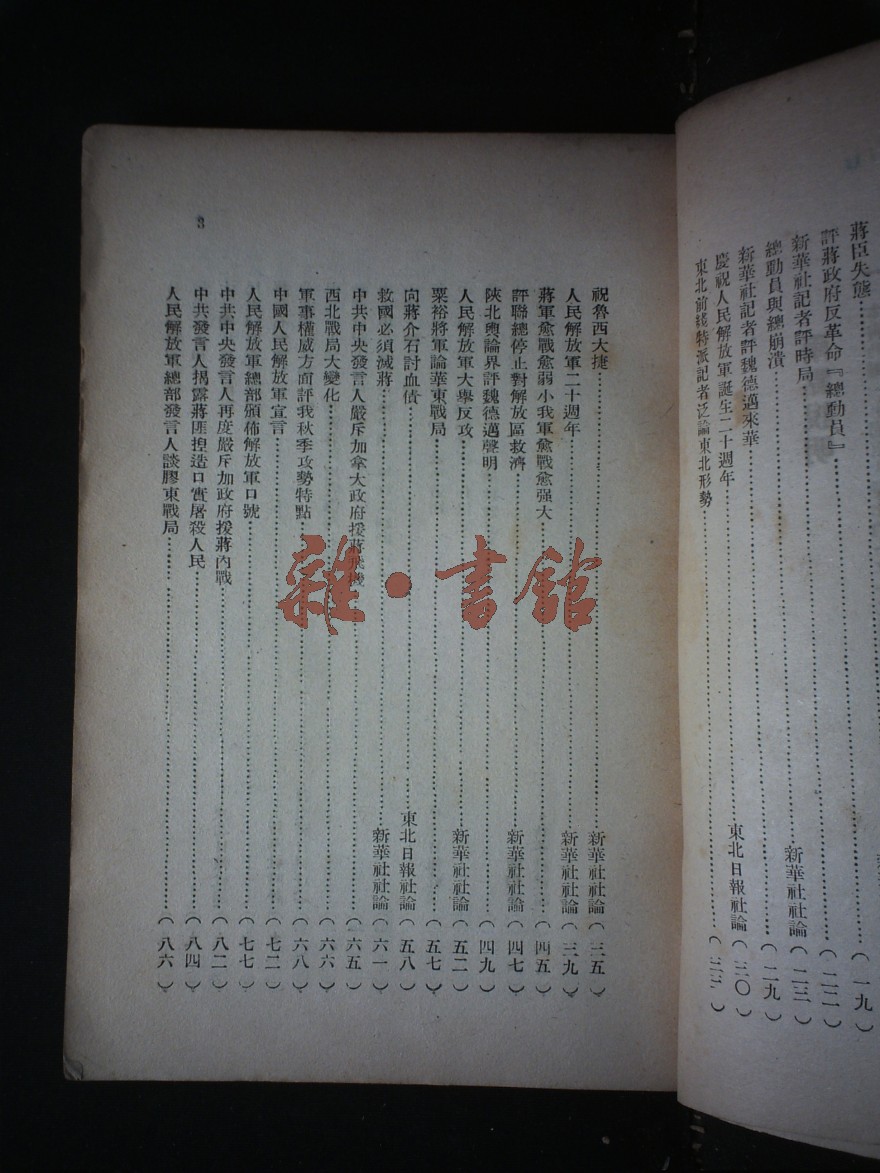 蔣臣失態……(一九)
評蔣政府反革命『總動員』……(二二)
新華社記者評時局……新華社社論(二三)
總動員與總崩潰……(二九)
新華社記者評魏德邁來華
慶祝人民解放軍誕生二十週年……東北日報社論(三〇)
東北前綫特派記者泛論東北形勢
祝魯西大捷……新華社社論(三五)
人民解放軍二十週年……新華社社論(三九)
蔣軍愈戰愈弱小我軍愈戰愈强大……(四五)
評聯總停止對解放區救濟……新華社社論(四七)
陝北輿論界評魏德邁聲明……(四九)
人民解放軍大舉反攻……新華社社論(五二)
粟裕將軍論華東戰局……(五七)
向蔣介石討血債……東北日報社論(五八)
救國必須滅蔣……新華社社論(六一)
中共中央發言人嚴斥加拿大政府援蔣飛機……(六五)
西北戰局大變化……(六六)
軍事權威方面評我秋季攻勢特點……(六八)
中國人民解放軍宣言……(七二)
人民解放軍總部頒佈解放軍口號……(七七)
中共中央發言人再度嚴斥加政府援蔣內戰……(八二)
中共發言人揭露蔣匪捏造口實屠殺人民……(八四)
人民解放軍總部發言人談膠東戰局……(八六)
3
雜·書館